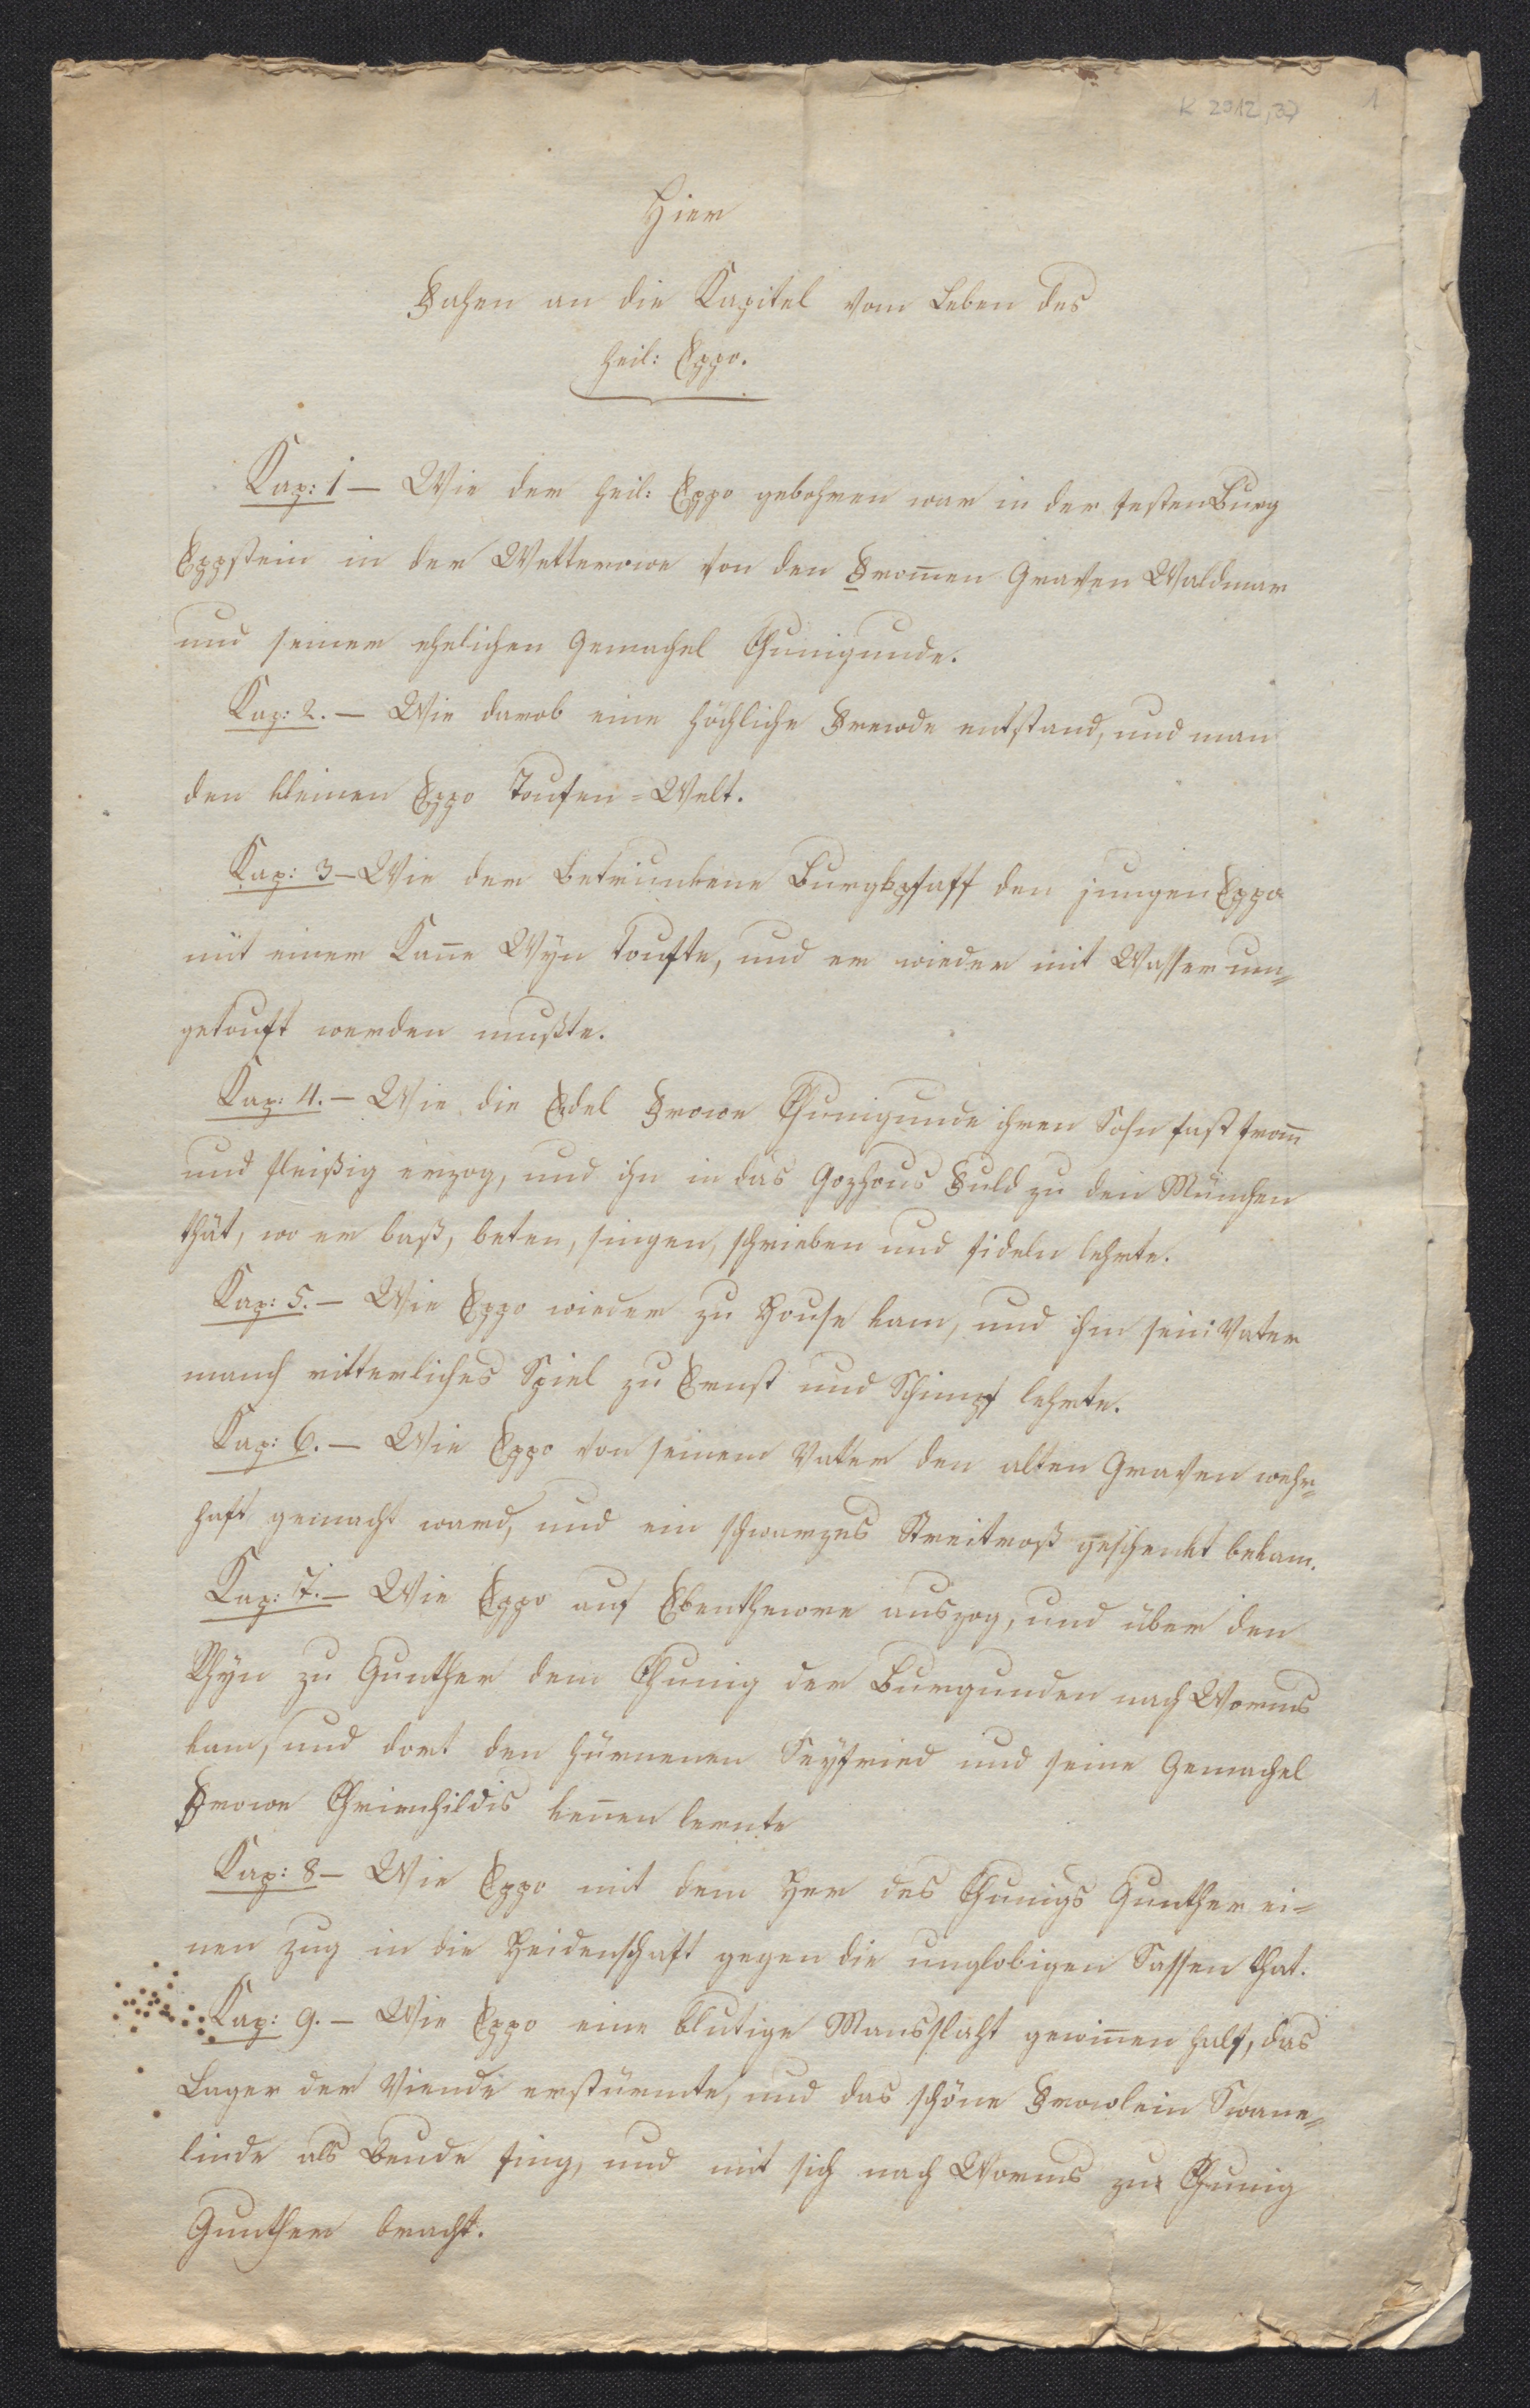 K 2012,37
1
Hier
Fahen an die Kapitel vom Leben des
heil: Eppo.
Kap: 1 — Wie der heil: Eppo gebohren war in der festen Burg
Eppstein in der Wetterowe von den From̅en Graven Waldmar
und seiner ehelichen Gemachel Chunigunde.
Kap: 2. — Wie darob eine höchliche Frewde entstand, und man
den kleinen Eppo Toufen = Welt.
Kap: 3 — Wie der Betrunkene Burgkpfaff den jungen Eppo
mit einer Kan̅e Wyn toufte, und er wieder mit Wasser um=
getouft werden mußte.
Kap: 4. — Wie die Edel Frowe Chunigunde ihren Sohn fast from̅
und fleißig erzog, und ihn in das Gozhous Fuld zu den München
thät, wo er baß, beten, singen, schrieben und fideln lehrte.
Kap: 5. — Wie Eppo wieder zu House kam, und ihm sein Vater
manch ritterliches Spiel zu Ernst und Schimpf lehrte.
Kap: 6. — Wie Eppo von seinem Vater den alten Graven wehr=
haft gemacht ward, und ein schwarzes Streitroß geschenkt bekam.
Kap: 7. — Wie Eppo auf Ebenthewre auszog, und über den
Rhyn zu Gunther dem Chunig der Burgunden nach Worms
kam, und dort den hürnenen Seyfried und seine Gemachel
Frowe Chrimhildis ken̅en lernte
Kap: 8 — Wie Eppo mit dem Her des Chunigs Gunther ei=
nen Zug in die Heidenschaft gegen die unglobigen Sassen that.
Kap: 9. — Wie Eppo eine blutige Mansslaht gewin̅en half, das
Lager der Viende erstürmte, und das schöne Frowlein Swane=
linde als Beude fing, und mit sich nach Worms zu Chunig
Gunther bracht.